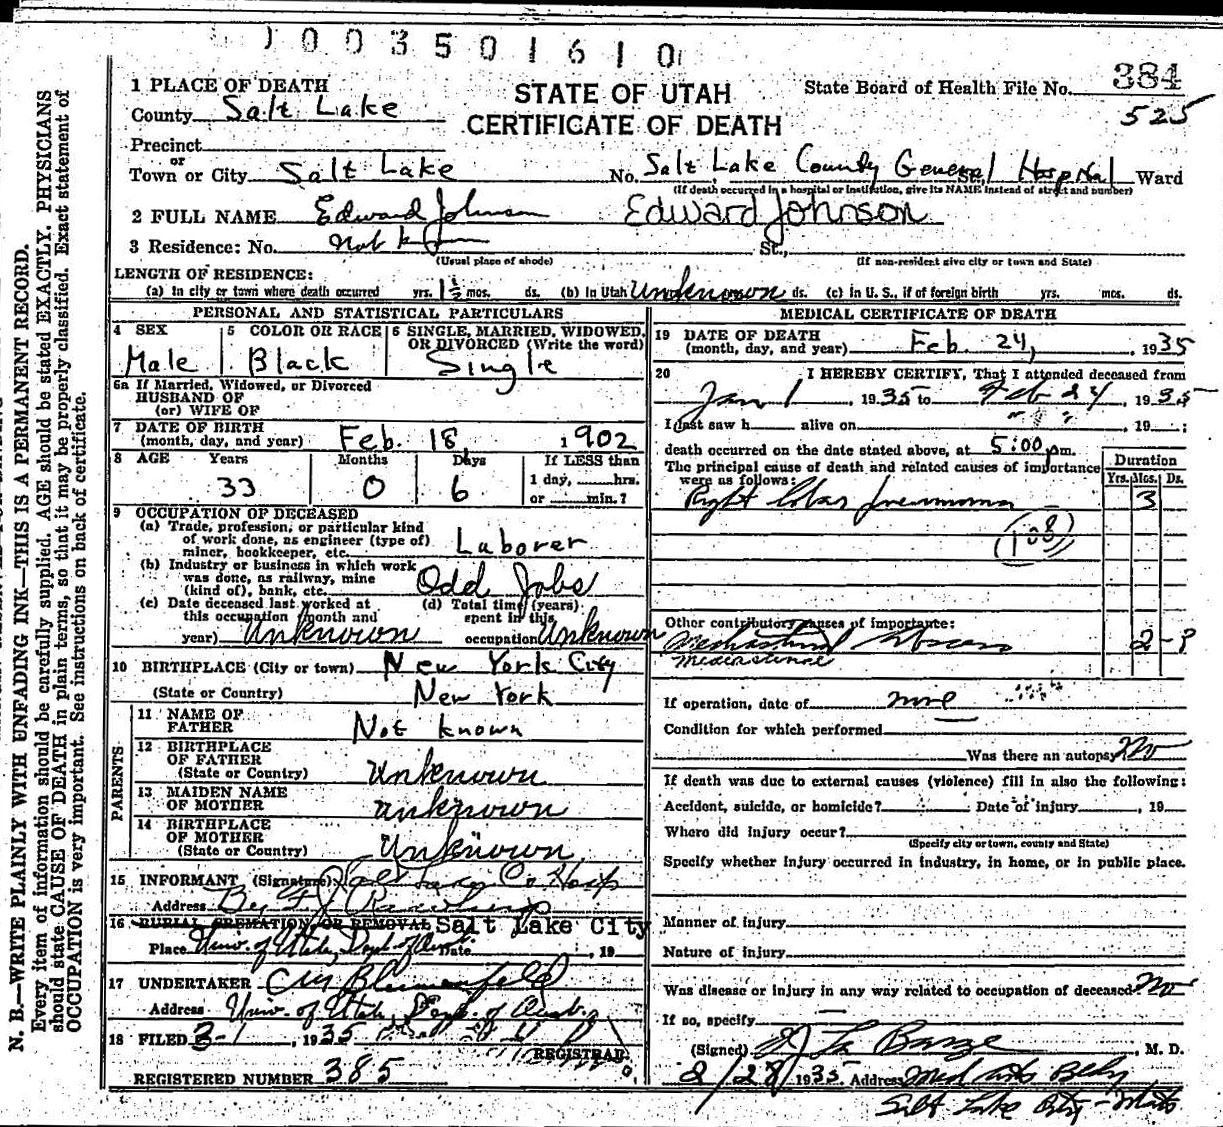 1003501610
1 PLACE OF DEATH
STATE OF UTAH
CERTIFICATE OF DEATH
State Board of Health File No. 384
525
County Salt Lake
Precinct
or
Town or City Salt Lake No. Salt Lake County General Hospital St., Ward
(If death occurred in a hospital or institution, give its NAME instead of street and number)
2 FULL NAME Edward Johnson Edward Johnson
3 Residence: No. not known St.,
(Usual place of abode) (If non-resident give city or town and State)
LENGTH OF RESIDENCE:
(a) In city or town where death occurred yrs. 1½ mos. ds. (b) In Utah Unknown ds. (c) In U. S., if of foreign birth yrs. mos. ds.
PERSONAL AND STATISTICAL PARTICULARS
4 SEX Male
5 COLOR OR RACE Black
6 SINGLE, MARRIED, WIDOWED, OR DIVORCED (Write the word) Single
6a If Married, Widowed, or Divorced
HUSBAND OF
(or) WIFE OF
7 DATE OF BIRTH
(month, day, and year) Feb. 18 1902
8 AGE Years Months Days If LESS than
33 0 6 1 day, hrs.
or min.?
9 OCCUPATION OF DECEASED
(a) Trade, profession, or particular kind
of work done, as engineer (type of)
miner, bookkeeper, etc. Laborer
(b) Industry or business in which work
was done, as railway, mine
(kind of), bank, etc. Odd Jobs
(c) Date deceased last worked at
this occupation (month and
year) Unknown
(d) Total time (years)
spent in this
occupation Unknown
10 BIRTHPLACE (City or town) New York City
(State or Country) New York
PARENTS
11 NAME OF
FATHER Not known
12 BIRTHPLACE
OF FATHER
(State or Country) Unknown
13 MAIDEN NAME
OF MOTHER unknown
14 BIRTHPLACE
OF MOTHER
(State or Country) Unknown
15 INFORMANT (Signature) Salt Lake Co Hosp
Address
16 BURIAL CREMATION OR REMOVAL Salt Lake City
Place Univ. of Utah, Dept. of Anat. Date , 19
17 UNDERTAKER
Address Univ. of Utah, Dept. of
18 FILED 3-1, 1935
REGISTRAR.
REGISTERED NUMBER 385
MEDICAL CERTIFICATE OF DEATH
19 DATE OF DEATH
(month, day, and year) Feb. 24, 1935
20 I HEREBY CERTIFY, That I attended deceased from
Jan 1, 1935 to Feb 24, 1935
I last saw h alive on , 19 ;
death occurred on the date stated above, at 5:00 pm.
The principal cause of death and related causes of importance
were as follows:
Duration
Yrs. Mos. Ds.
Right lobar pneumonia 3
108
Other contributory causes of importance:
Mediastinal abscess 2 - ?
Mediastinal
If operation, date of none
Condition for which performed
Was there an autopsy No
If death was due to external causes (violence) fill in also the following:
Accident, suicide, or homicide? Date of injury , 19
Where did injury occur?
(Specify city or town, county and State)
Specify whether injury occurred in industry, in home, or in public place.
Manner of injury
Nature of injury
Was disease or injury in any way related to occupation of deceased? No
If so, specify
(Signed) J La Barge, M. D.
2/28/1935 Address Med Arts Bldg
Salt Lake City - Utah
N. B.—WRITE PLAINLY WITH UNFADING INK—THIS IS A PERMANENT RECORD.
Every item of information should be carefully supplied. AGE should be stated EXACTLY. PHYSICIANS
should state CAUSE OF DEATH in plain terms, so that it may be properly classified. Exact statement of
OCCUPATION is very important. See instructions on back of certificate.